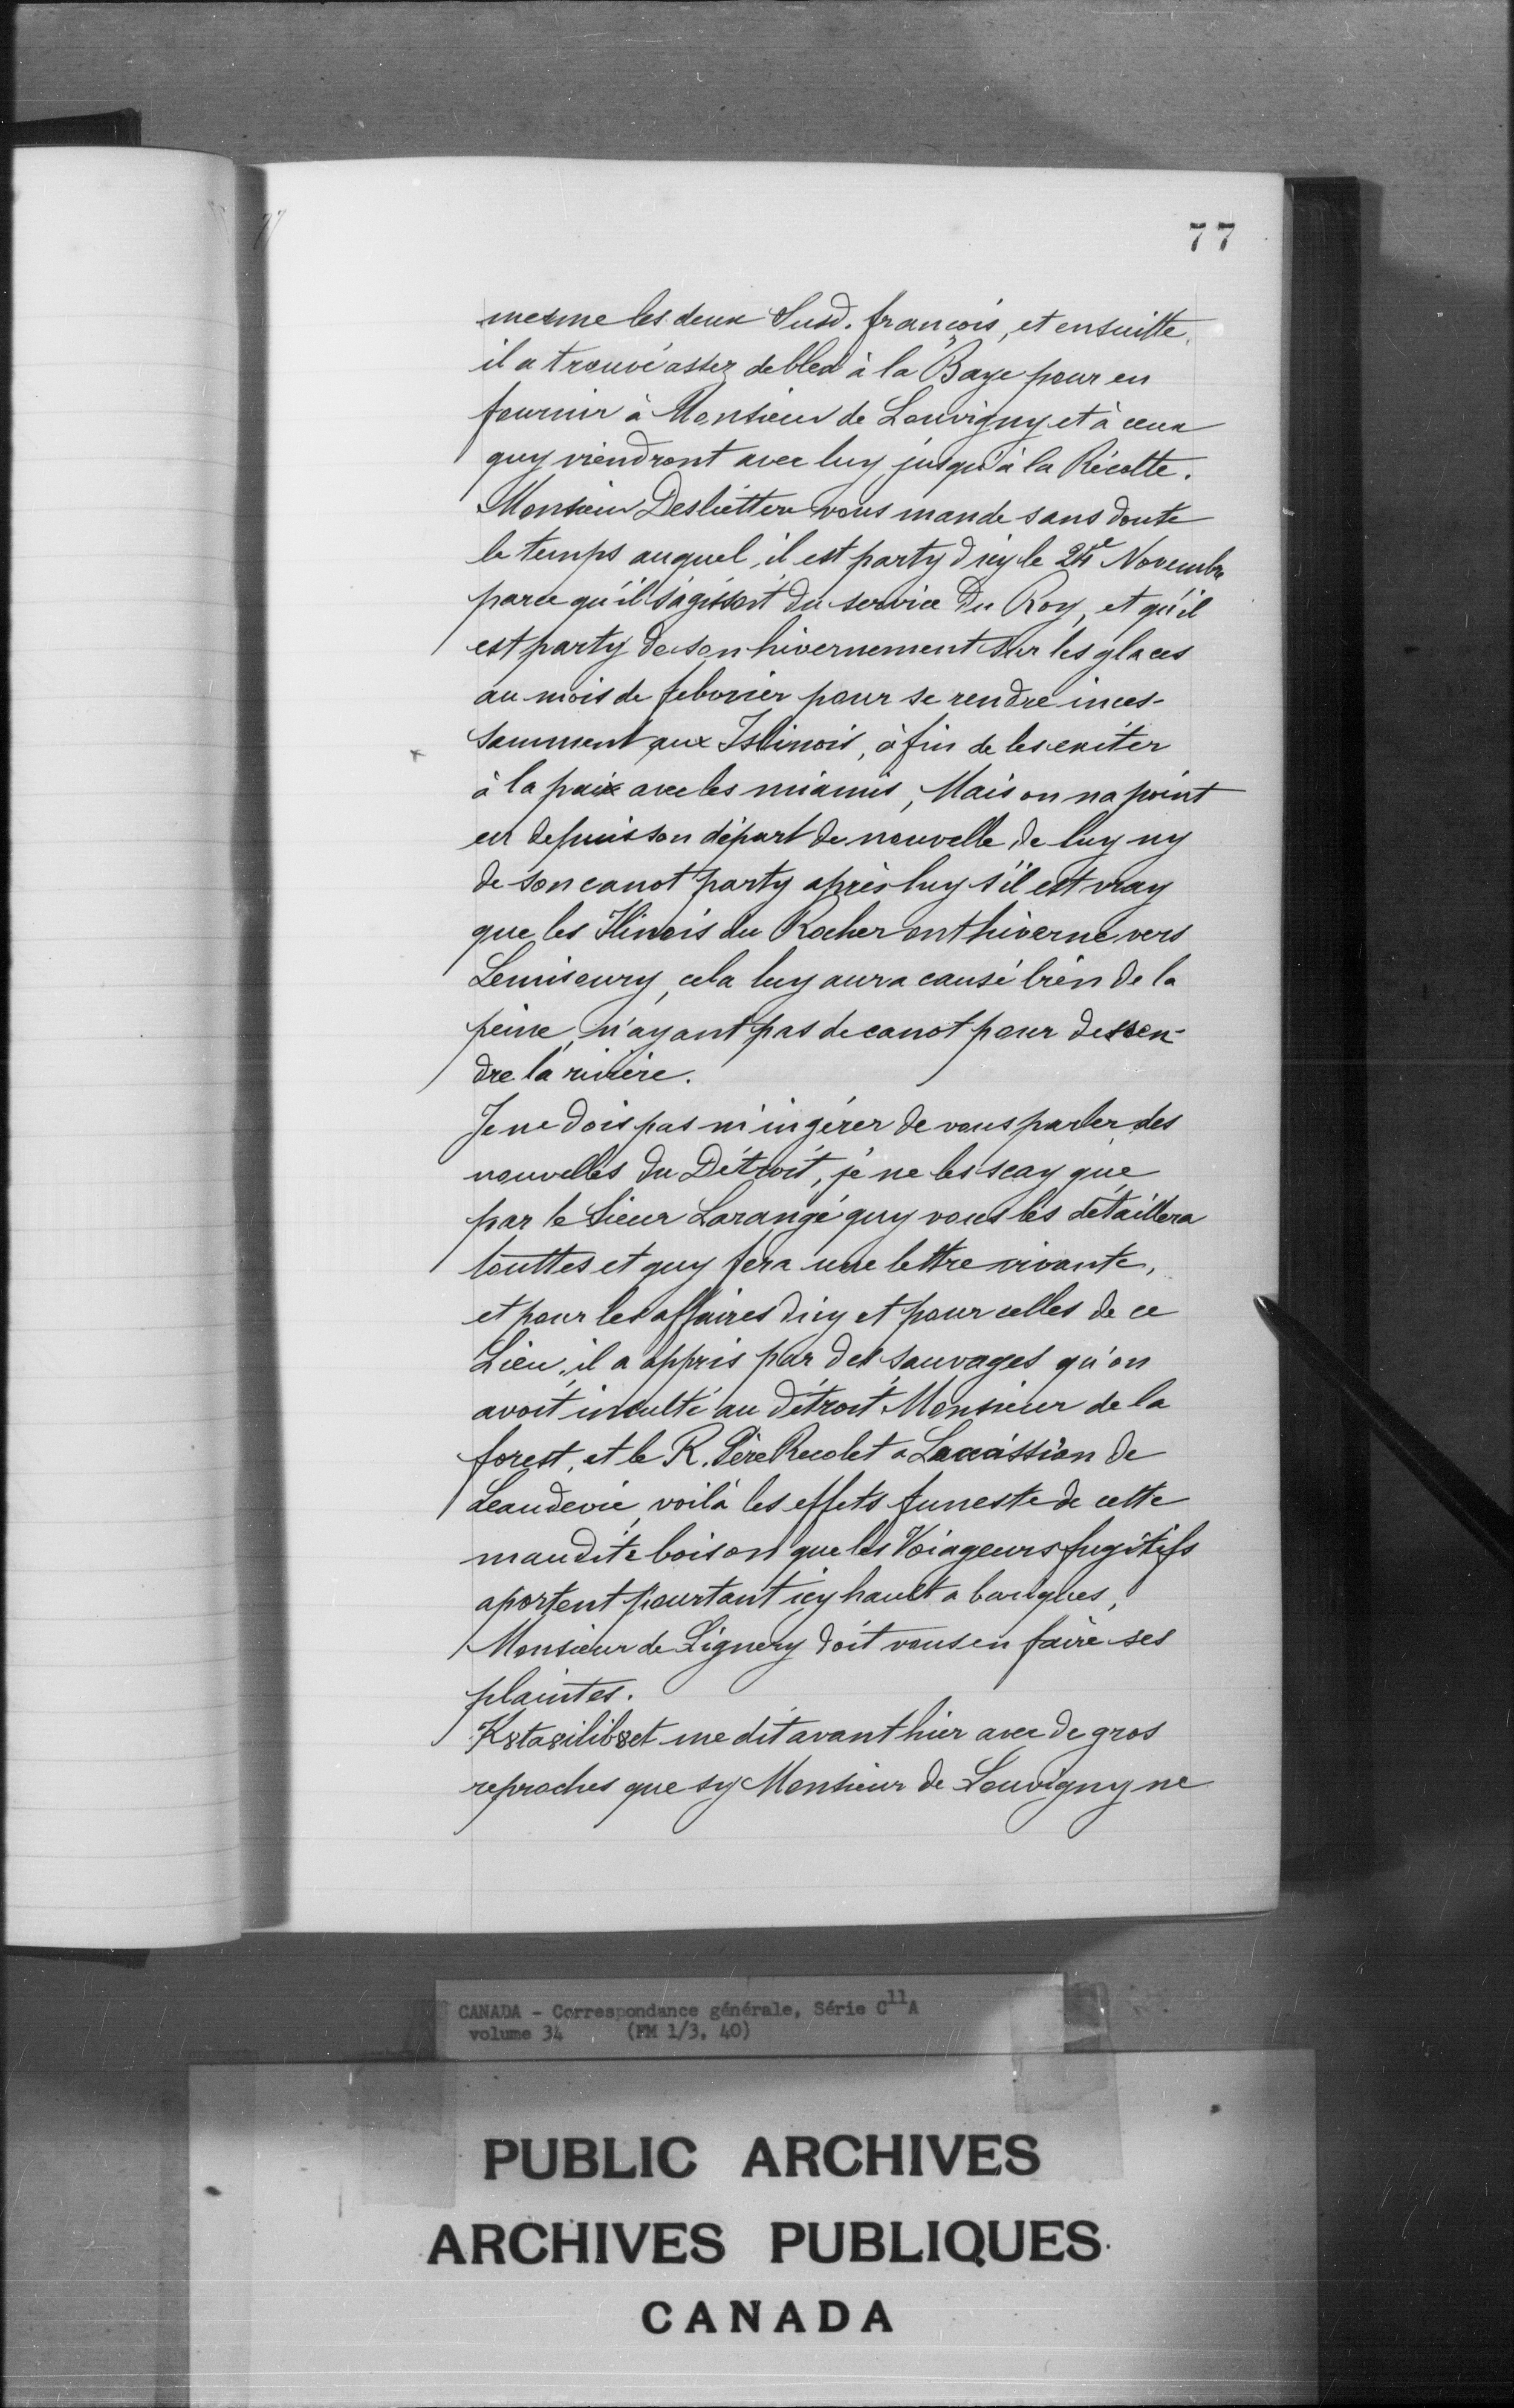 77
mesme les deux Susd. françois, et ensuitte,
il a trouvé assez de bled à la Baye pour en
fournir à Monsieur de Louvigny et à ceux
quy viendront avec luy jusqu'à la Récolte.
Monsieur Desliettes vous mande sans doute
le temps auquel, il est party d'icy le 24e Novembre
parce qu'il s'agissoit du service Du Roy, et qu'il
est party de son hivernement sur les glaces
au mois de febvrier pour se rendre inces-
samment aux Islinois, à fin de les exiter
à la paix avec les miamis, Mais on na point
eu depuis son départ de nouvelle de luy ny
de son canot party après luy s'il est vray
que les Ilinois du Rocher ont hiverné vers
Lemisoury, cela luy aura causé bien de la
peine, n'ayant pas de canot pour dessen-
dre la rivière.
Je ne dois pas m'ingérer de vous parler des
nouvelles du Détroit, je ne les scay que
par le Sieur Larangé quy vous les détaillera
touttes et quy fera une lettre vivante,
et pour les affaires d'icy et pour celles de ce
Lieu, il a appris par des sauvages qu'on
avoit insulté au détroit Monsieur de la
forest, et le R. Père Recolet a Lacassion de
Leaudevie, voilà les effets funeste de cette
maudite boison que les Voiageurs fugitifs
aportent pourtant icy hault a barigues,
Monsieur de Lignery doit vous en faire ses
plaintes.
K8tasilib8et me dit avant hier avec de gros
reproches que sy Monsieur de Louvigny ne
CANADA - Correspondance générale, Série C11A
volume 34 (FM 1/3, 40)
PUBLIC ARCHIVES
ARCHIVES PUBLIQUES
CANADA